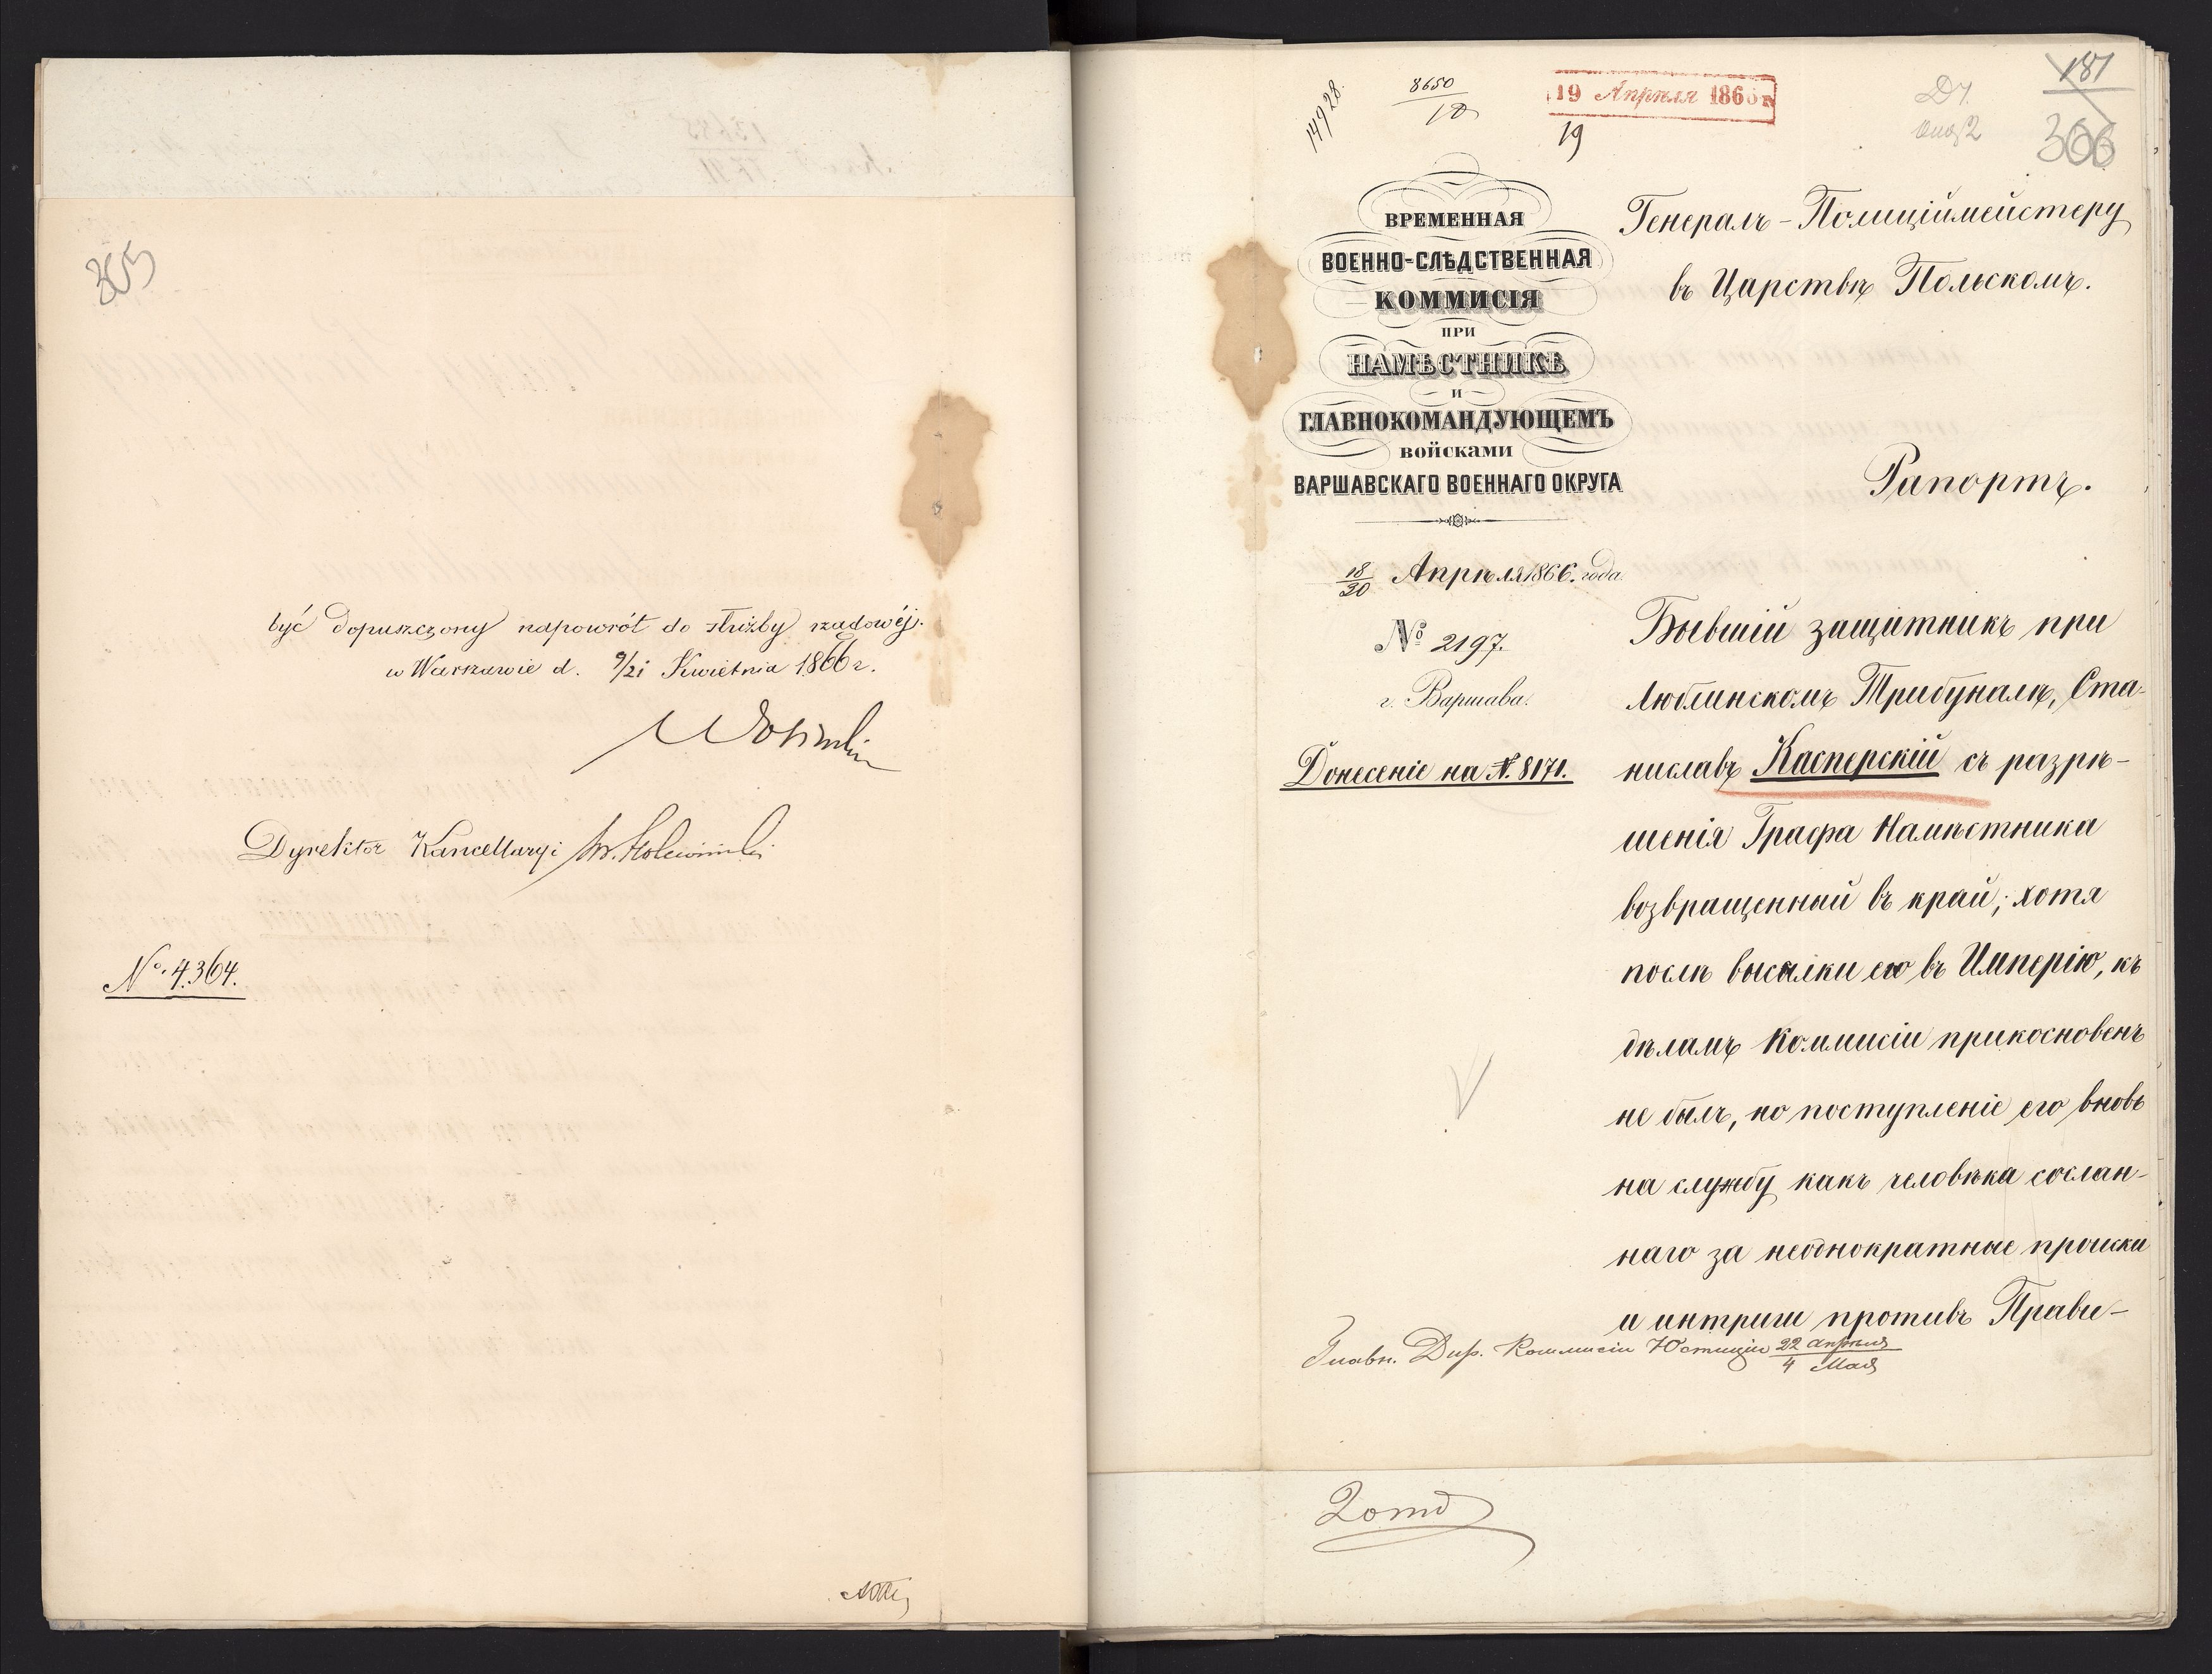 305
być dopuszczony napowrót do służby rządowéj.
w Warszawie d. 9/21 Kwietnia 1866 r.
Dyrektor Kancellaryi
No. 4.364.
14928.
8650
19 Апрѣля 186
19
181
306
ВРЕМЕННАЯ
ВОЕННО-СЛѢДСТВЕННАЯ
КОММИСІЯ
ПРИ
НАМѢСТНИКѢ
И
ГЛАВНОКОМАНДУЮЩЕМЪ
ВОЙСКАМИ
ВАРШАВСКАГО ВОЕННАГО ОКРУГА
18/30 Апрѣля 1866. года.
№ 2197.
г. Варшава.
Донесеніе на №. 8171.
Генералъ-Полиціймейстеру
въ Царствѣ Польскомъ.
Рапортъ.
Бывшій защитникъ при
Люблинскомъ Трибуналѣ, Ста-
ниславъ Касперскій съ разрѣ-
шенія Графа Намѣстника
возвращенный въ край; хотя
послѣ высылки его въ Имперію, къ
дѣламъ Коммисіи прикосновенъ
не былъ, но поступленіе его вновь
на службу какъ человѣка сослан-
наго за неоднократные происки
и интриги противъ Прави-
Главн. Дир. Коммисіи Юстиціи 22 апрѣля / 4 Мая